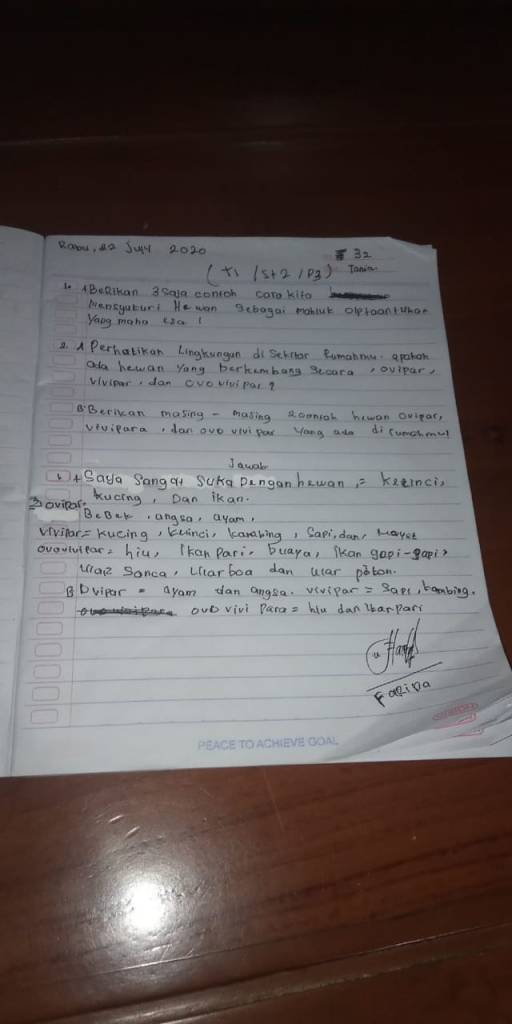 Rabu, 22 July 2020
32
(T1 / S+2 / P3) Tania
1. A Berikan 3 saja contoh cara kita
Mensyukuri Hewan sebagai mahluk ciptaan tuhan
Yang maha esa !
2. A Perhatikan Lingkungan di Sekitar Rumahmu. apakah
ada hewan yang berkembang secara , ovipar,
vivipar, dan ovo vivipar ?
B. Berikan masing - masing 2 contoh hewan ovipar,
vivipara, dan ovo vivi par yang ada di rumahmu!
Jawab
1. A Saya Sangat Suka Dengan hewan, = kelinci,
kucing, Dan ikan.
ovipar
BeBek, angsa, ayam,
vivipar = kucing, kelinci, kambing, Sapi, dan,
ovovivipar = hiu, Ikan pari, buaya, Ikan gapi-gapi,
Ular Sanca, Ular boa dan ular piton.
B Ovipar = ayam dan angsa. vivipar = Sapi, kambing.
ovo vivi para = hiu dan ikan pari
Farida
PEACE TO ACHIEVE GOAL